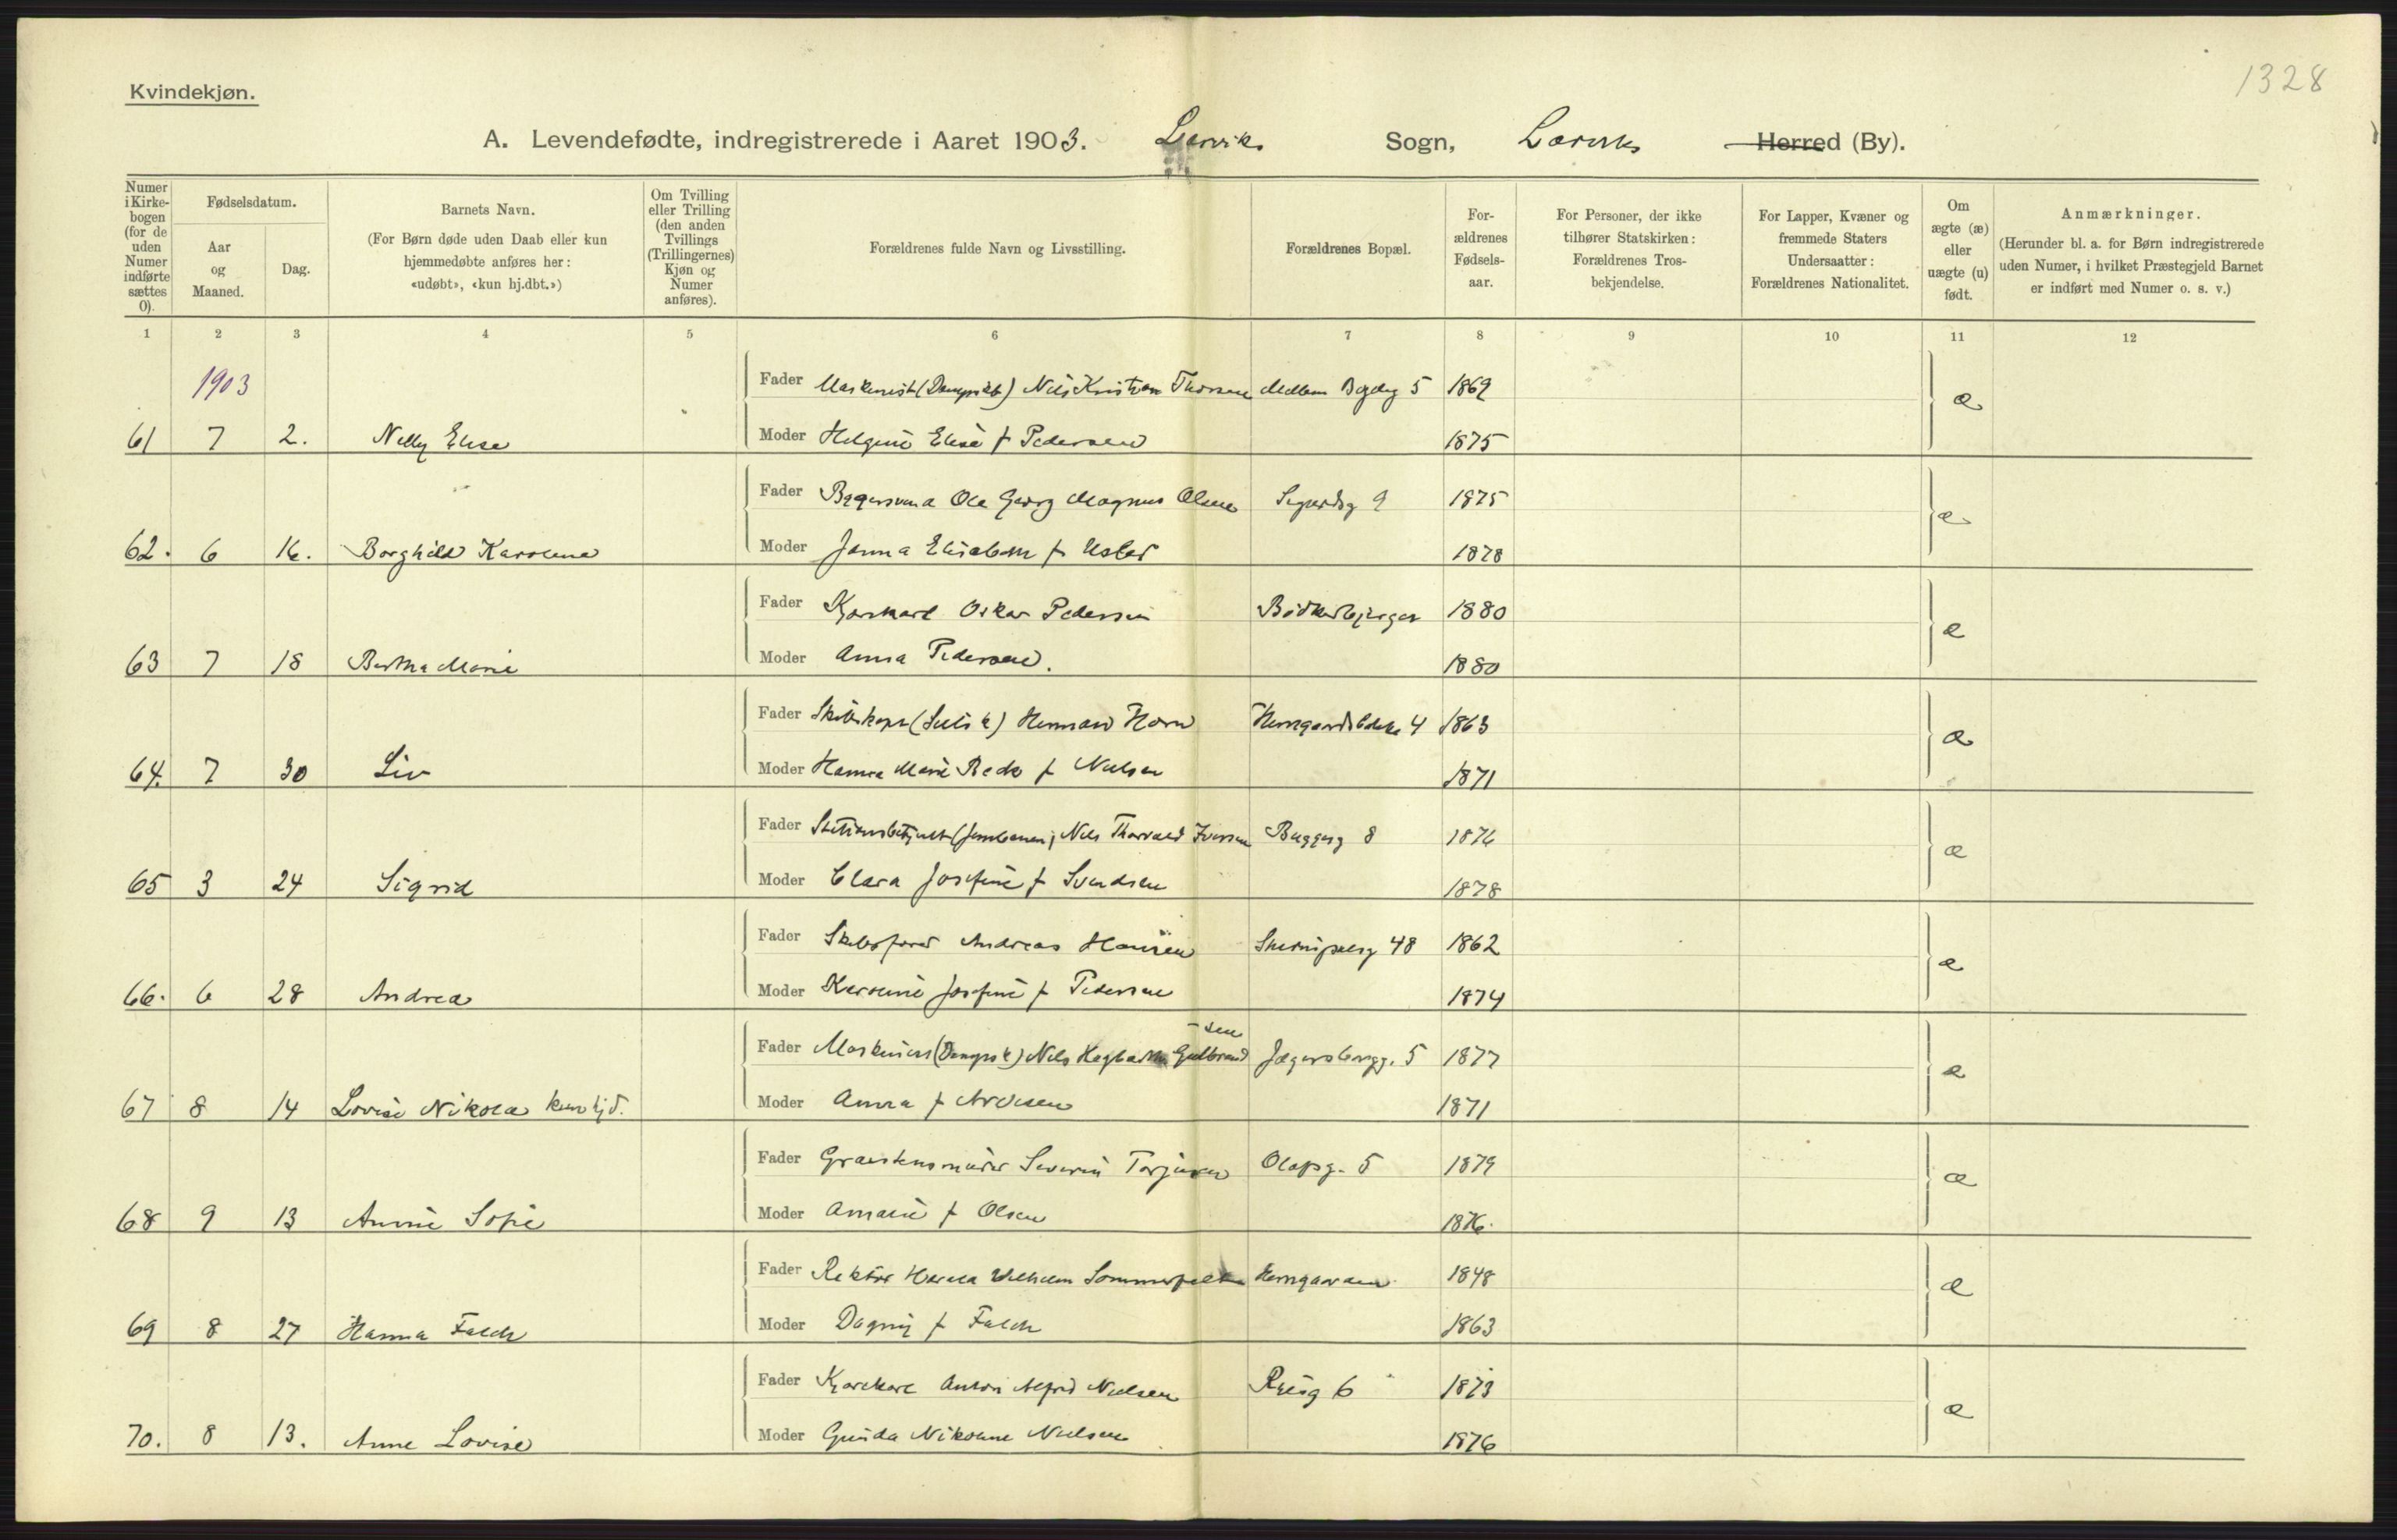 1328
Kvindekjøn.
A. Levendefødte, indregistrerede i Aaret 1903. Larviks Sogn, Larviks Herred (By).
Numer i Kirkebogen (for de uden Numer indførte sættes 0).
Fødselsdatum.
Aar og Maaned.
Dag.
Barnets Navn.
(For Børn døde uden Daab eller kun hjemmedøbte anføres her: «udøbt», «kun hj.dbt.»)
Om Tvilling eller Trilling (den anden Tvillings (Trillingernes) Kjøn og Numer anføres).
Forældrenes fulde Navn og Livsstilling.
Forældrenes Bopæl.
Forældrenes Fødselsaar.
For Personer, der ikke tilhører Statskirken: Forældrenes Trosbekjendelse.
For Lapper, Kvæner og fremmede Staters Undersaatter: Forældrenes Nationalitet.
Om ægte (æ) eller uægte (u) født.
Anmærkninger.
(Herunder bl. a. for Børn indregistrerede uden Numer, i hvilket Præstegjeld Barnet er indført med Numer o. s. v.)
1 2 3 4 5 6 7 8 9 10 11 12
1903
Fader Maskinist (Dampskb) Nils Kristian Thorsen Mellem Bøgleg 5 1869 æ
61 7 2. Nelly Elise Moder Helgine Elise f Pedersen 1875
Fader Bagersvend Ole Georg Magnus Olsen Sigurdsg 9 1875 æ
62. 6 16. Borghild Karoline Moder Janna Elisabeth f 1878
Fader Kjørekarl Oskar Pedersen Bödkerbjerget 1880 æ
63 7 18 Bertha Marie Moder Anna Pedersen. 1880
Fader Skibskapt (Seilsk) Herman Horn Herregaardsbakke 4 1863 æ
64. 7 30 Liv Moder Hanna Marie Beck f Nielsen 1871
Fader Stationsbetjent (Jernbanen) Nils Thorvald Iversen Buggesg 8 1876 æ
65 3 24 Sigrid Moder Clara Josefine f Svendsen 1878
Fader Skibsfører Andreas Hansen 48 1862 æ
66. 6 28 Andrea Moder Karoline Josefine f Pedersen 1874
-sen
Fader Maskinist (Dampsk) Nils Hagbarth Gulbrand Jægersborgg. 5 1877 æ
67 8 14 Lovise Nikola kun hj d. Moder Anna f Arvesen 1871
Fader Graastensmurer Severin Torjusen Olafsg. 5 1879 æ
68 9 13 Annie Sofie Moder Amalie f Olsen 1876.
Fader Rektor Harald Vilhelm Sommerfeldt Herregaarden 1848 æ
69 8 27 Hanna Falch Moder Dagny f Falch 1863
Fader Kjørekarl Anton Alfred Nielsen 6 1873 æ
70. 8 13. Anne Lovise Moder Gunda Nikoline Nielsen 1876